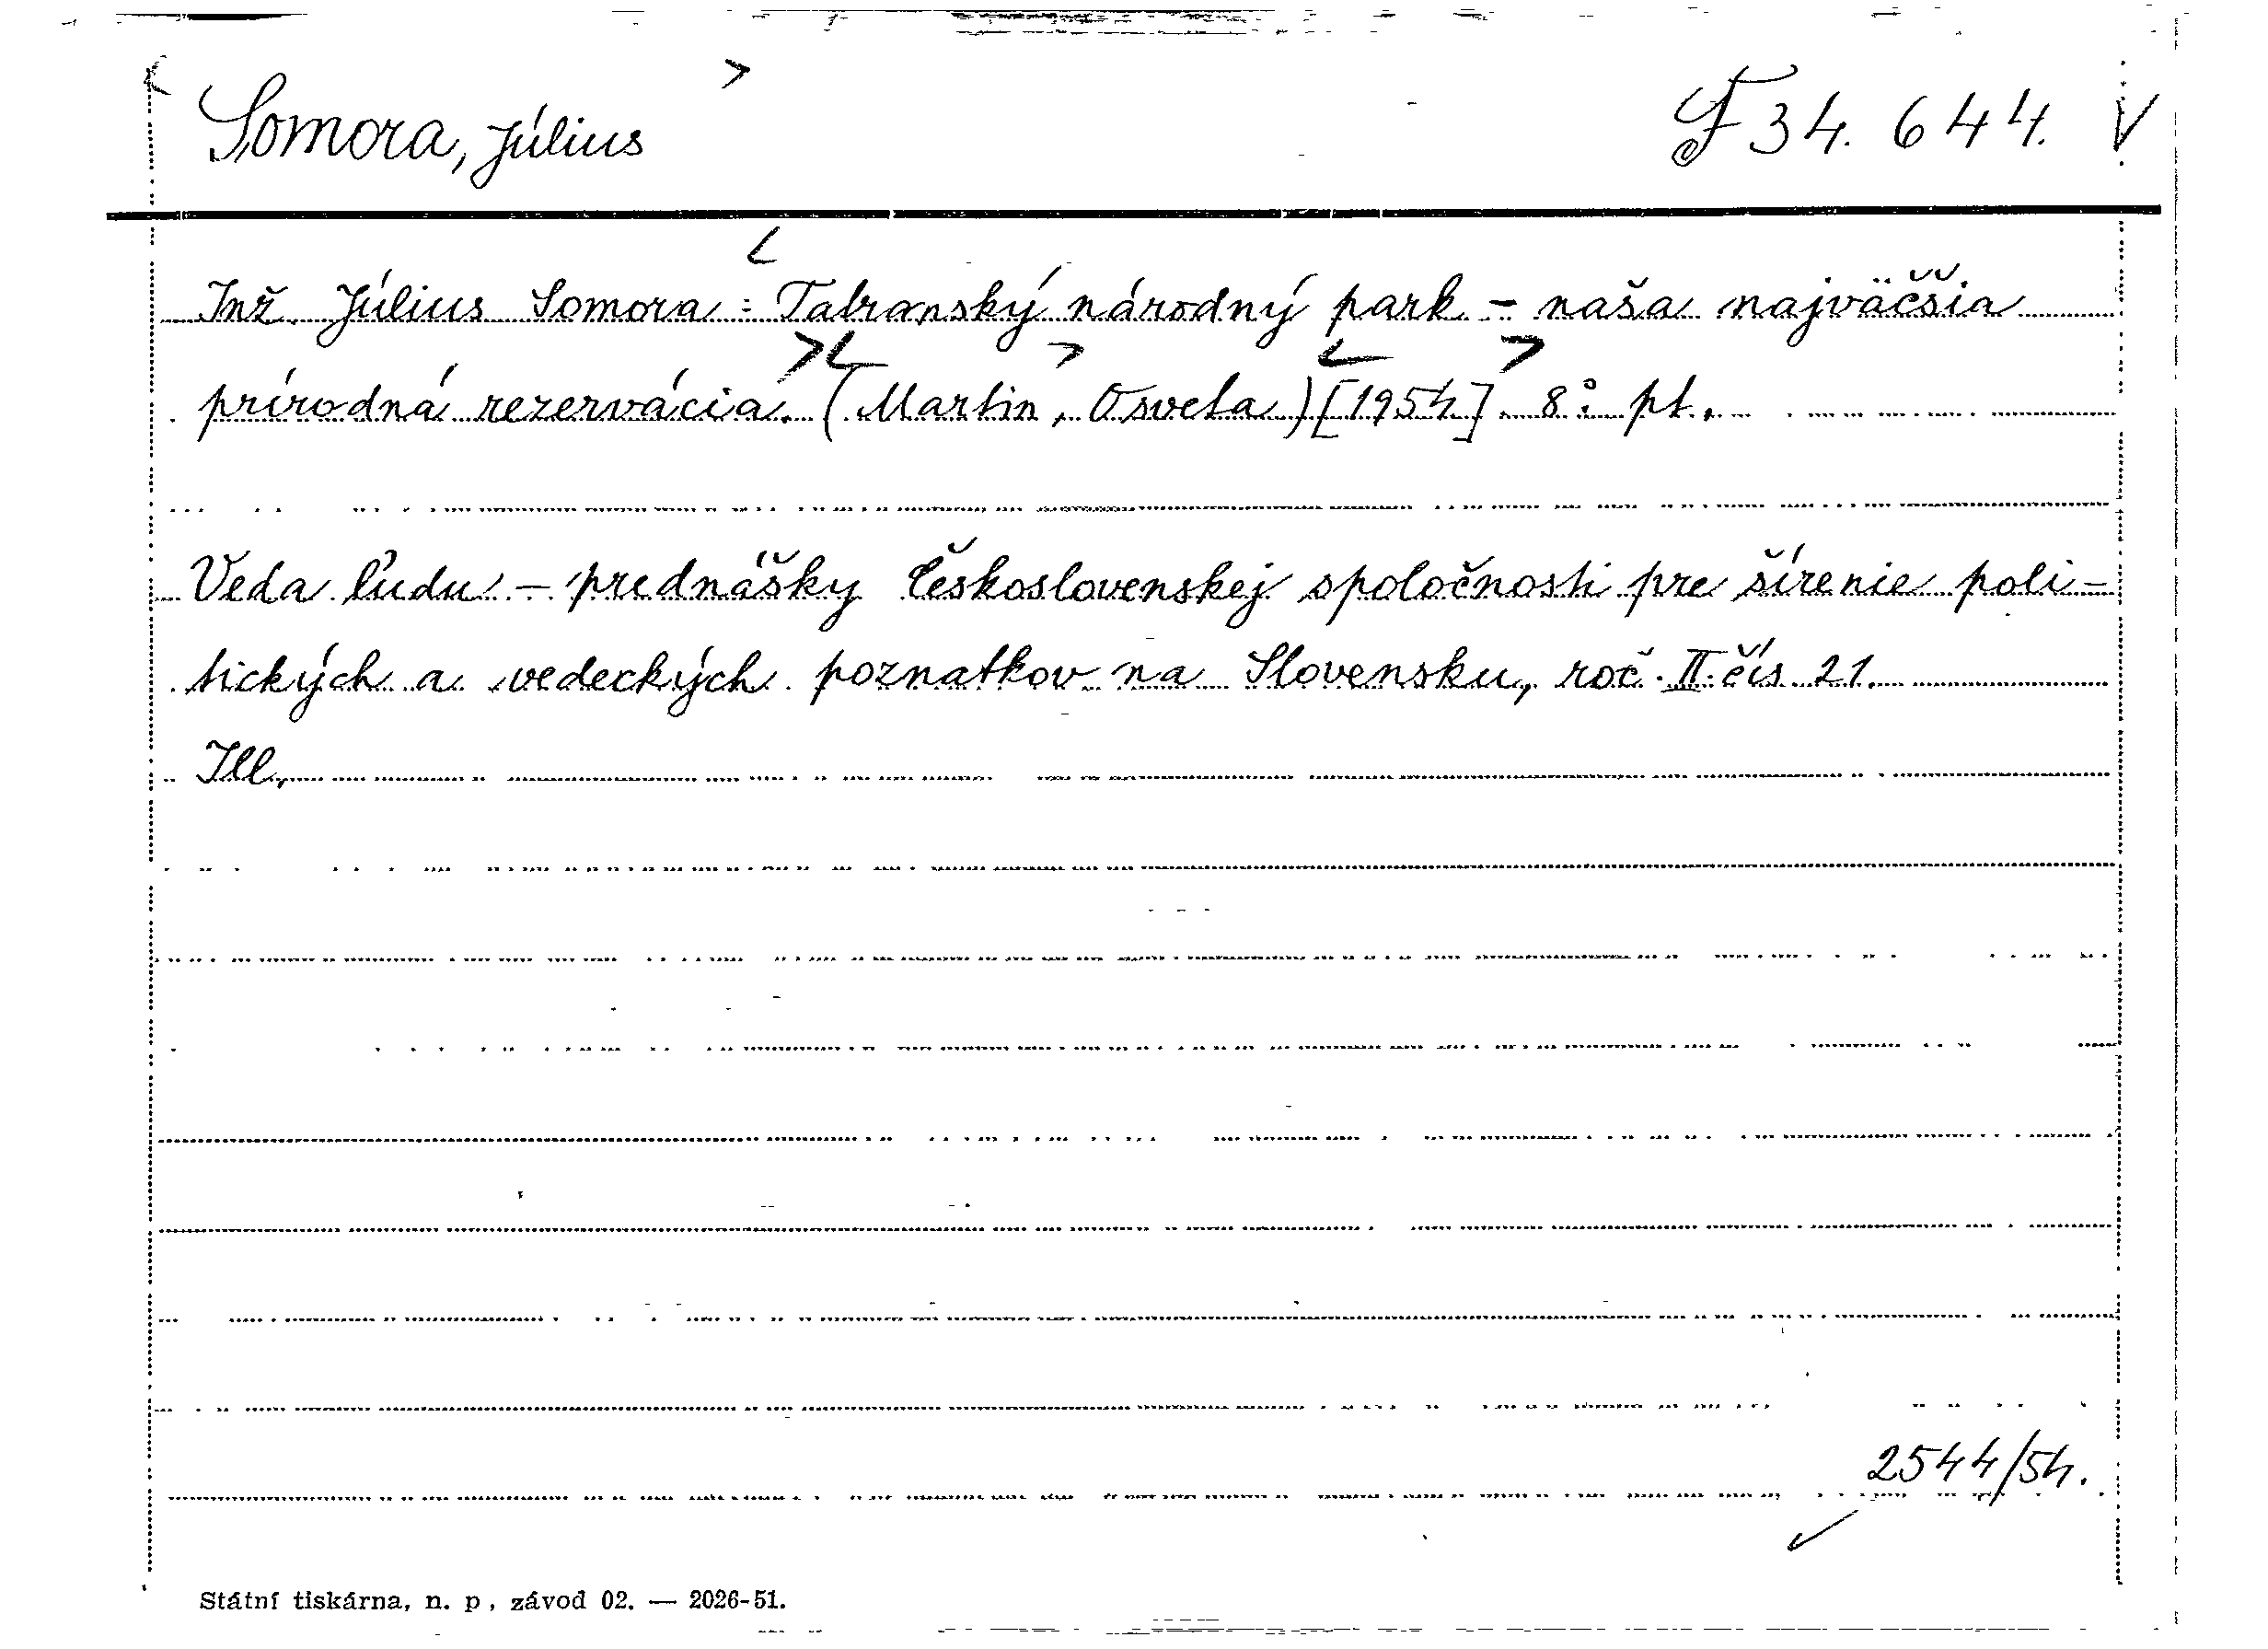 Somora, Július F 34.644. V
Inž. Július Somora: Tatranský národný park - naša najväčšia
prírodná rezervácia. (Martin, Osveta) [1954] 8° pt.
Veda ľudu - prednášky Československej spoločnosti pre šírenie poli-
tických a vedeckých poznatkov na Slovensku, roč. II. čís 21.
Ill.
2544/54.
Státní tiskárna, n. p, závod 02. — 2026-51.